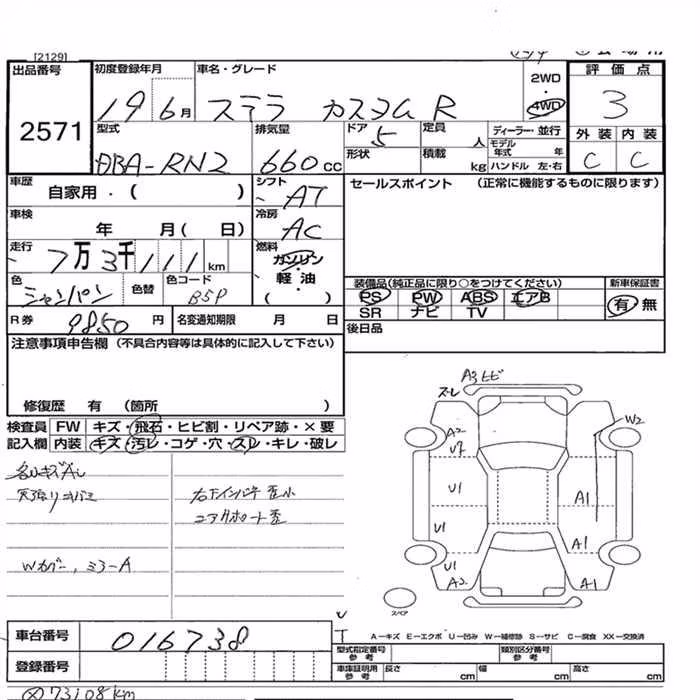 [2129]
出品番号 初度登録年月 車名・グレード 2WD ・ 4WD 評価点
2571
19 6月 ステラ カスタム R 3
型式 排気量 ドア 定員 ディーラー・並行 外装 内装
DBA-RN2 660cc 5 人 モデル年式 年 C C
形状 積載 kg ハンドル 左・右
車歴 自家用・( ) シフト AT セールスポイント (正常に機能するものに限ります)
車検 年 月( 日) 冷房 AC
走行 7万3千111km 燃料 ガソリン・軽油・( )
色 シャンパン 色替 色コード B5P
装備品(純正品に限り○をつけてください) 新車保証書
PS PW ABS エアB 有・無
SR ナビ TV
R券 9850円 名変通知期限 月 日 後日品
注意事項申告欄 (不具合内容等は具体的に記入して下さい)
修復歴 有 (箇所 )
検査員 FW キズ・飛石・ヒビ割・リペア跡・×要
記入欄 内装 キズ・汚レ・コゲ・穴・スレ・キレ・破レ
Wカバー, ミラーA
A3ヒビ
ズレ
A2
W2
U1
A1
U1
A1
U1
A2
A1
スペア
A-キズ E-エクボ U-凹み W-補修跡 S-サビ C-腐食 XX-交換済
車台番号 016738
型式指定番号 参考 類別区分番号 参考
登録番号
車庫証明用 参考 長さ cm 幅 cm 高さ cm
73108km